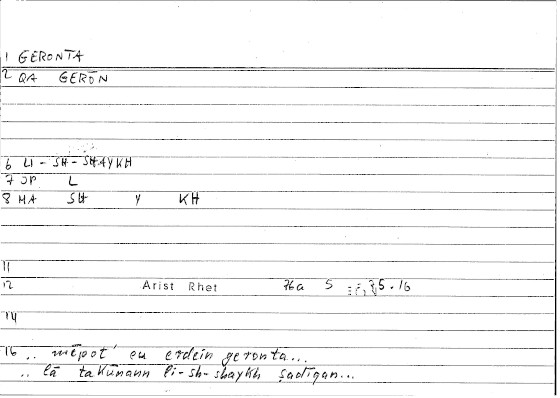 1 GERONTA
2 QA GERŌN
6 LI-SH-SHAYKH
7 OP L
8 MA SH Y KH
11
12 Arist Rhet 76a 5 75.16
14
16 .. mēpot' eu erdein geronta...
.. lā takūnann li-sh-shaykh ṣadīqan...